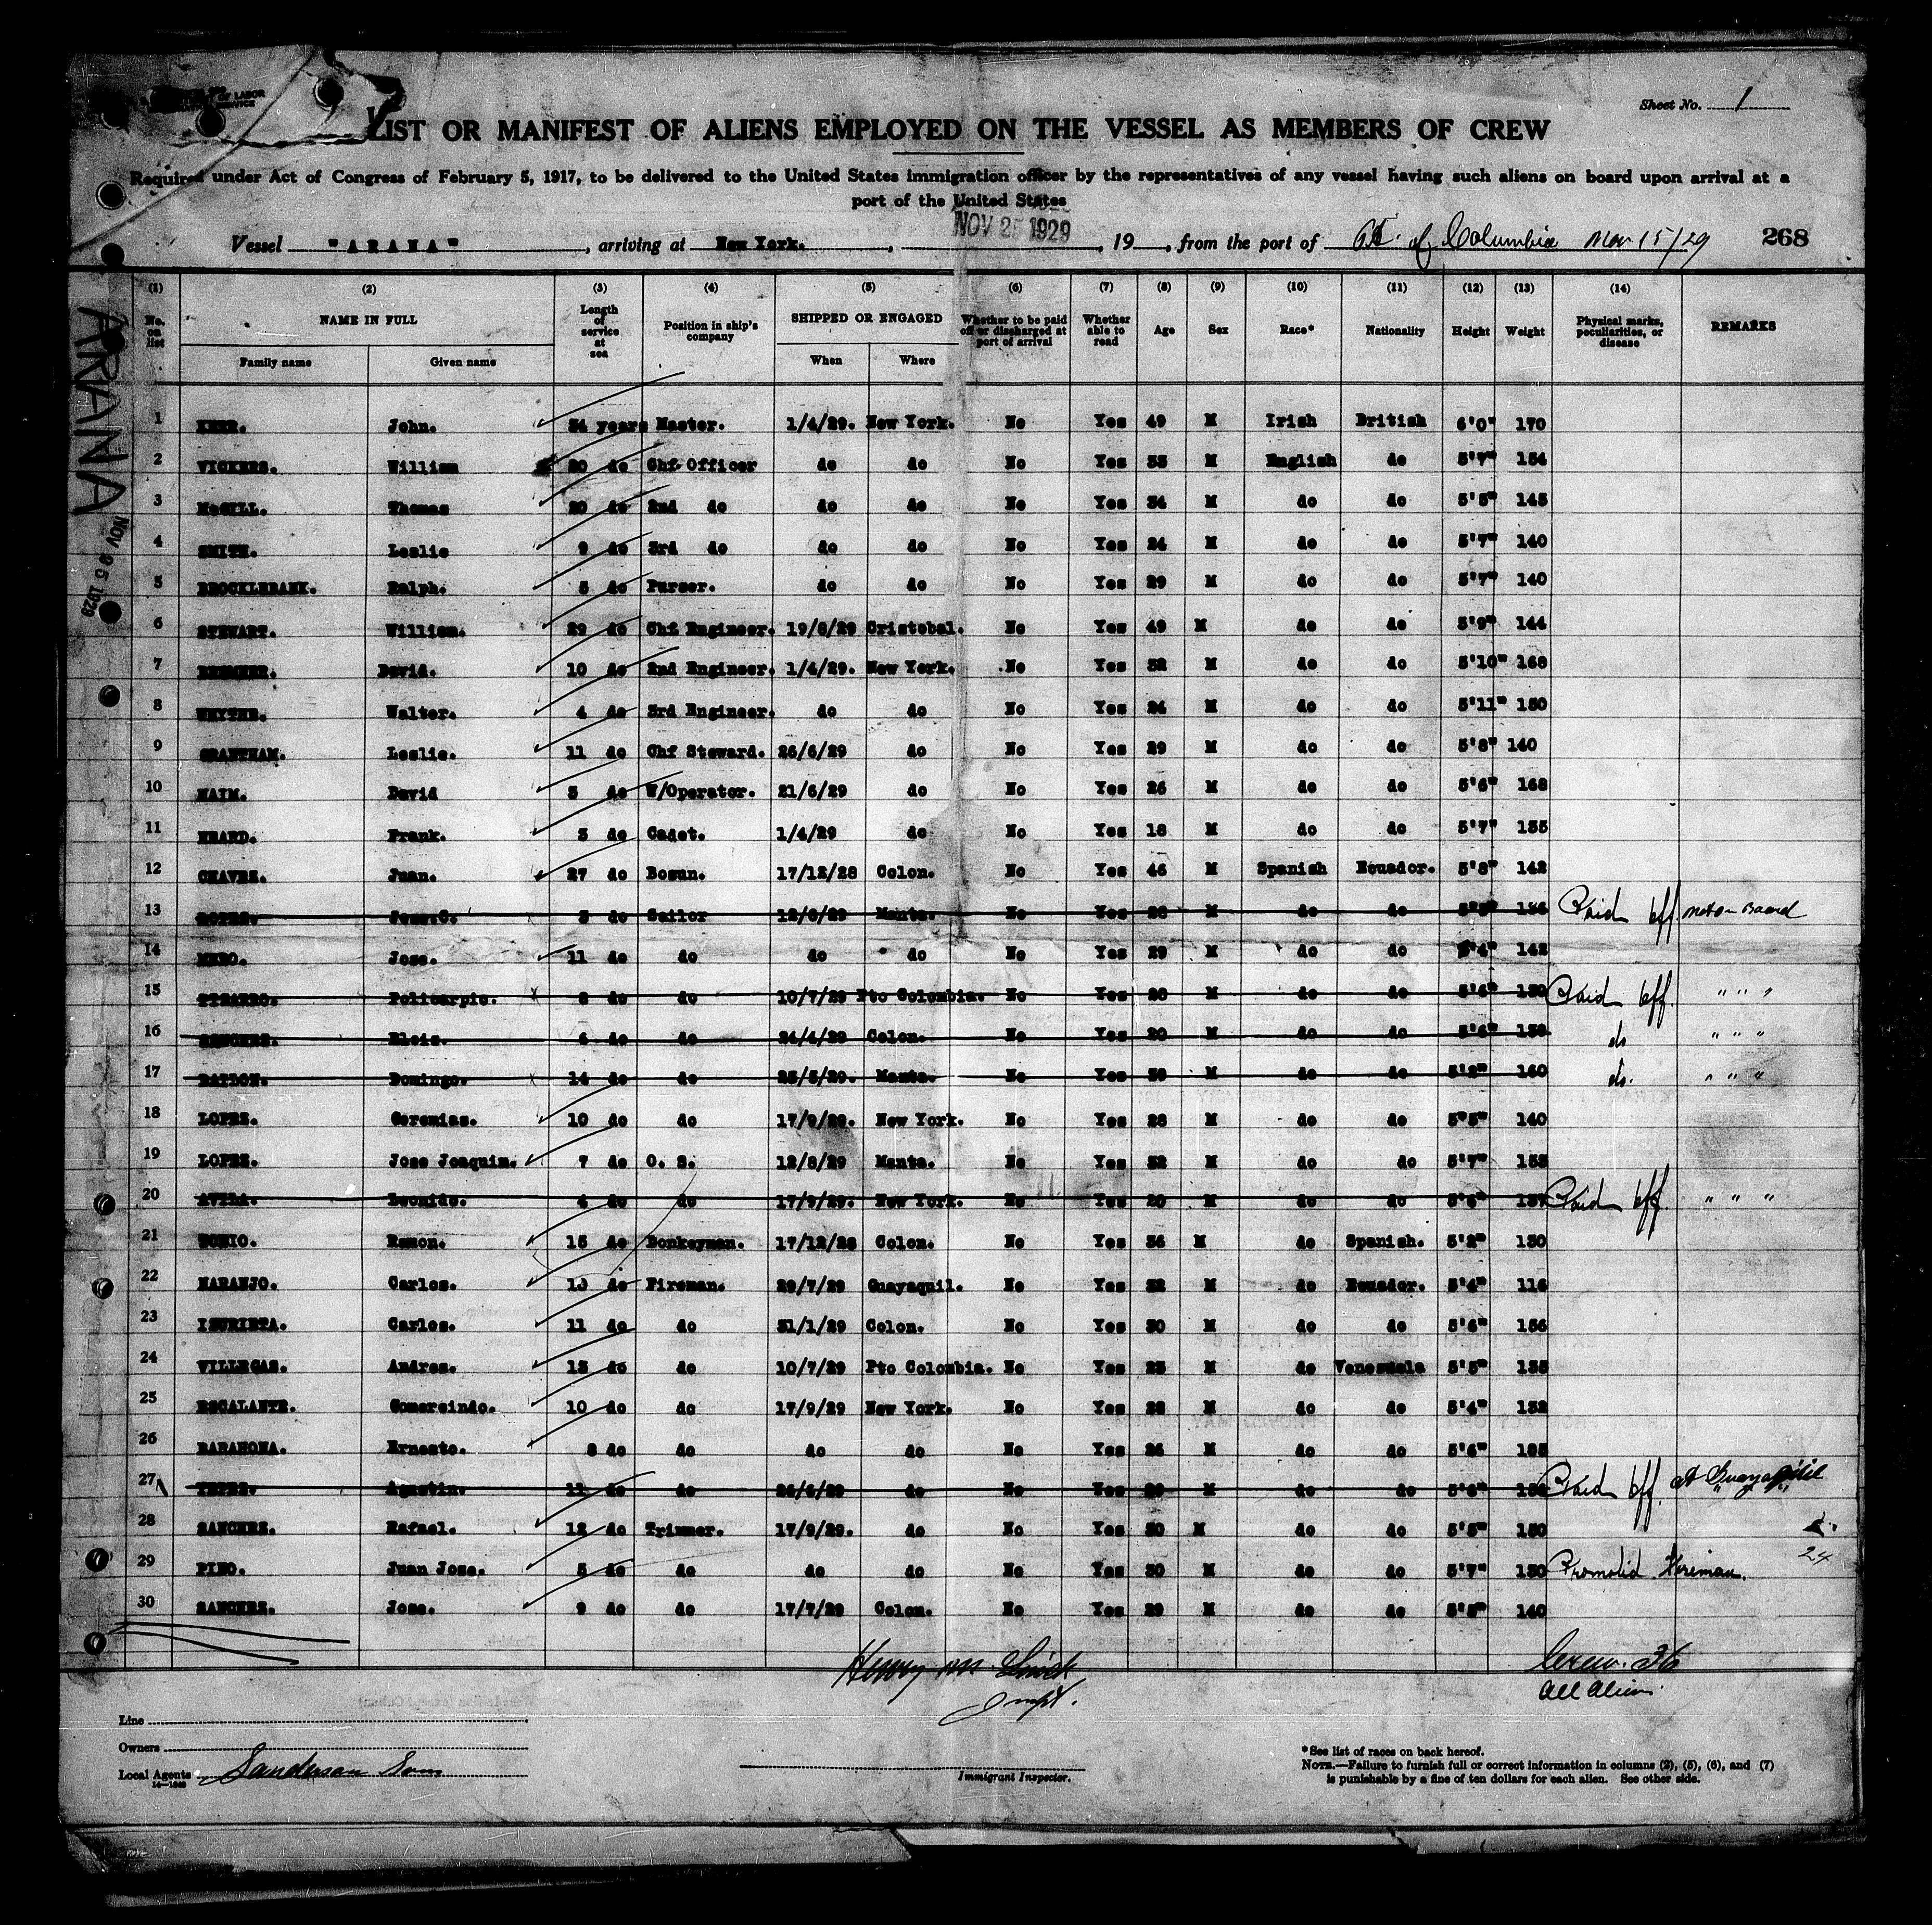 OF LABOR
SERVICE
Sheet No. 1
LIST OR MANIFEST OF ALIENS EMPLOYED ON THE VESSEL AS MEMBERS OF CREW
Required under Act of Congress of February 5, 1917, to be delivered to the United States immigration officer by the representatives of any vessel having such aliens on board upon arrival at a
port of the United States
NOV 25 1929
Vessel "ARANA", arriving at New York., 19, from the port of Pt. of Columbia Nov 15/29 268
(1) (2) (3) (4) (5) (6) (7) (8) (9) (10) (11) (12) (13) (14)
No. on list NAME IN FULL Family name Given name Length of service at sea Position in ship's company SHIPPED OR ENGAGED When Where Whether to be paid off or discharged at port of arrival Whether able to read Age Sex Race* Nationality Height Weight Physical marks, peculiarities, or disease REMARKS
ARANA
NOV 25 1929
1 KERR. John. 34 years Master. 1/4/29. New York. No Yes 49 M Irish British 6'0" 170
2 VICKERS. William 20 do Chf Officer do do No Yes 35 M English do 5'7" 154
3 McGILL. Thomas 20 do 2nd do do do No Yes 34 M do do 5'5" 145
4 SMITH. Leslie 9 do 3rd do do do No Yes 24 M do do 5'7" 140
5 BROCKLEBANK. Ralph. 5 do Purser. do do No Yes 29 M do do 5'7" 140
6 STEWART. William. 29 do Chf Engineer. 19/8/29 Cristobal. No Yes 49 M do do 5'9" 144
7 David. 10 do 2nd Engineer. 1/4/29. New York. No Yes 32 M do do 5'10" 168
8 WHYTHE. Walter. 4 do 3rd Engineer. do do No Yes 24 M do do 5'11" 150
9 GRANTHAM. Leslie. 11 do Chf Steward. 26/6/29 do No Yes 29 M do do 5'8" 140
10 HAIM. David 5 do W/Operator. 21/6/29 do No Yes 26 M do do 5'6" 168
11 HEARD. Frank. 3 do Cadet. 1/4/29 do No Yes 18 M do do 5'7" 155
12 CHAVES. Juan. 27 do Bosun. 17/12/28 Colon. No Yes 46 M Spanish Ecuador. 5'8" 142
13 Jose.C. 5 do Sailor 12/8/29 Manta. No Yes 28 M do do 156 Paid off not on Board
14 MERO. Jose. 11 do do do do No Yes 29 M do do 5'4" 142
15 PIZARRO. Policarpio. 8 do do 10/7/29 Pto Colombia. No Yes 28 M do do 5'4" 150 Paid off. " " "
16 SANCHEZ. Elois. 4 do do 24/4/29 Colon. No Yes 20 M do do 5'6" 150 do " " "
17 Domingo. 14 do do 25/5/29. Manta. No Yes 39 M do do 5'2" 160 do. " " "
18 LOPEZ. Geremias. 10 do do 17/9/29. New York. No Yes 28 M do do 5'5" 140
19 LOPEZ. Jose Joaquim. 7 do O. S. 12/8/29 Manta. No Yes 32 M do do 5'7" 155
20 AVILA. Leonido. 4 do do 17/9/29. New York. No Yes 20 M do do 5'6" 137 Paid off. " " "
21 Ramon. 15 do Donkeyman. 17/12/28 Colon. No Yes 36 M do Spanish. 5'2" 130
22 NARANJO. Carlos. 10 do Fireman. 29/7/29 Guayaquil. No Yes 32 M do Ecuador. 5'4" 116
23 IZURIETA. Carlos. 11 do do 31/1/29 Colon. No Yes 30 M do do 5'6" 156
24 VILLEGAS. Andres. 13 do do 10/7/29 Pto Colombia. No Yes 25 M do Venezuela 5'5" 135
25 ESCALANTE. Gomercindo. 10 do do 17/9/29 New York. No Yes 28 M do do 5'4" 132
26 BARAHONA. Ernesto. 8 do do do do No Yes 24 M do do 5'6" 185
27 YEPEZ. Agustin. 11 do do 26/6/29 do No Yes 29 M do do 5'6" Paid off. at Guayaquil
28 SANCHEZ. Rafael. 12 do Trimmer. 17/9/29. do No Yes 30 M do do 5'5" 150
29 PINO. Juan Jose. 5 do do do do No Yes 30 M do do 5'7" 130 Promotid Fireman. 24
30 SANCHEZ. Jose. 9 do do 17/7/29 Colon. No Yes 29 M do do 5'5" 140
Henry M
Inspt.
Crew. 36
All Aliens.
Line
Owners
Local Agents Sanderson Sons
14—1240
Immigrant Inspector.
*See list of races on back hereof.
NOTE.—Failure to furnish full or correct information in columns (2), (5), (6), and (7)
is punishable by a fine of ten dollars for each alien. See other side.